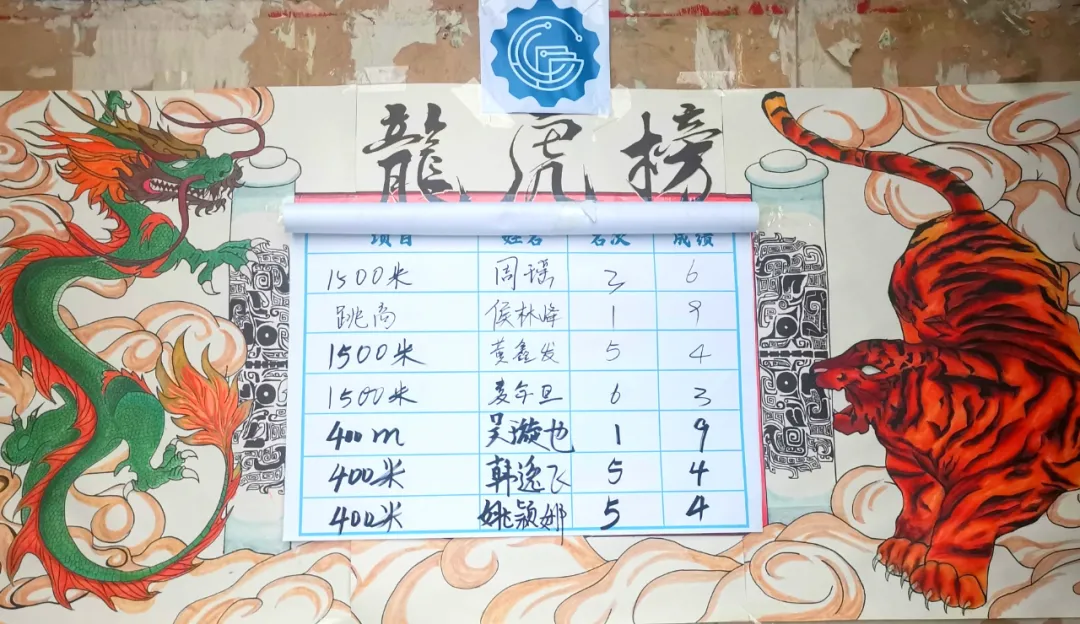 龍虎榜
项目 姓名 名次 成绩
1500米 周瑶 3 6
跳高 侯林峰 1 9
1500米 黄鑫发 5 4
1500米 麦尔旦 6 3
400m 吴璇也 1 9
400米 韩逸飞 5 4
400米 姚颖娜 5 4